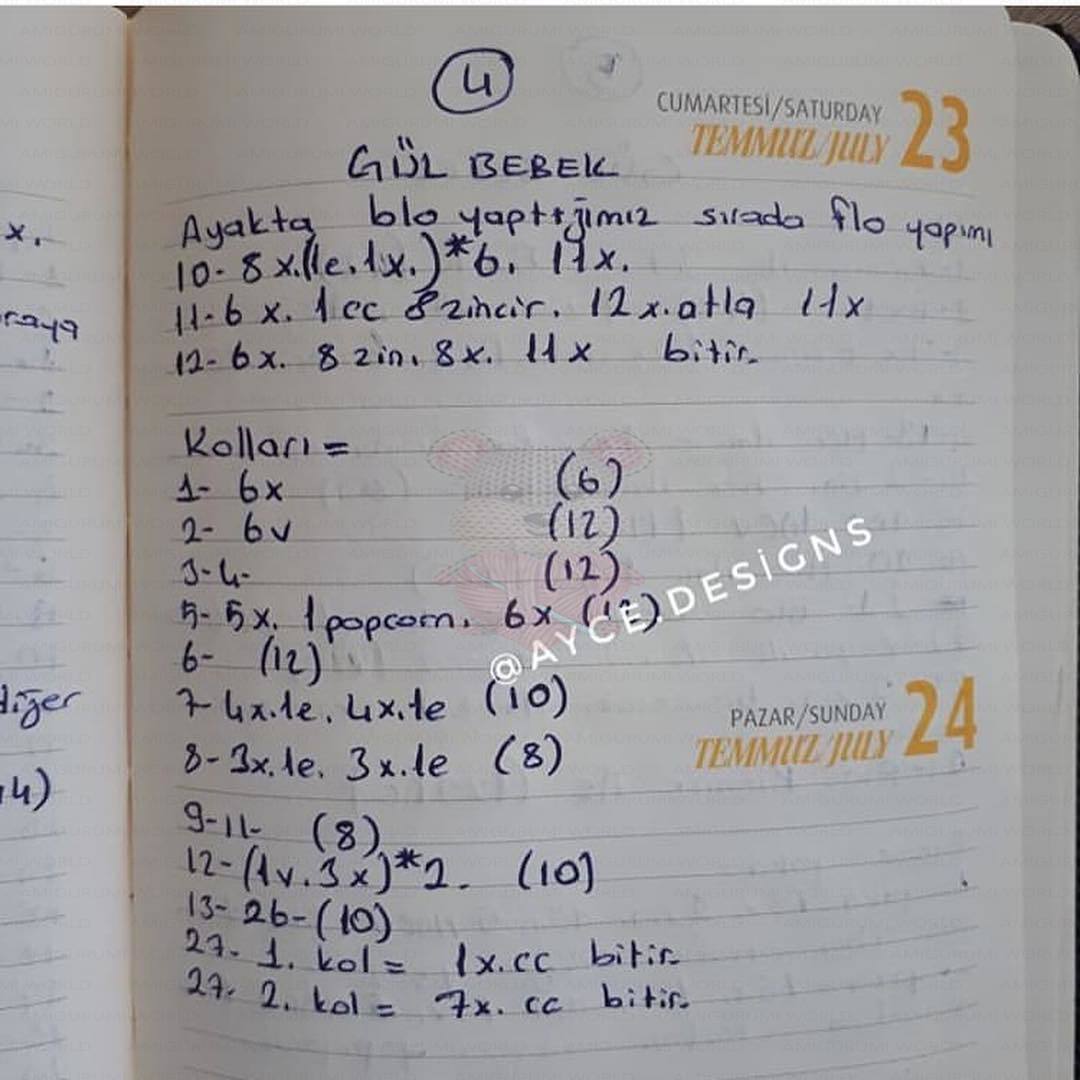 4
CUMARTESİ/SATURDAY
TEMMUZ/JULY 23
GÜL BEBEK
Ayakta blo yaptığımız sırada flo yapımı
10- 8x.(1e.1x.)*6. 11x.
11-6 x. 1cc 8 zincir. 12x.atla 11x
12-6x. 8 zin. 8x. 11x bitir.
Kolları=
1- 6x (6)
2- 6v (12)
3-4- (12)
5- 5x. 1popcorn. 6x (12)
6- (12)
7- 4x.1e. 4x.1e (10)
8- 3x.1e. 3x.1e (8)
PAZAR/SUNDAY
TEMMUZ/JULY 24
9-11- (8)
12-(1v.3x)*2. (10)
13-26-(10)
27- 1. kol= 1x.cc bitir.
27- 2. kol= 7x. cc bitir.
@AYCE.DESİGNS
x.
raya
diğer
4)